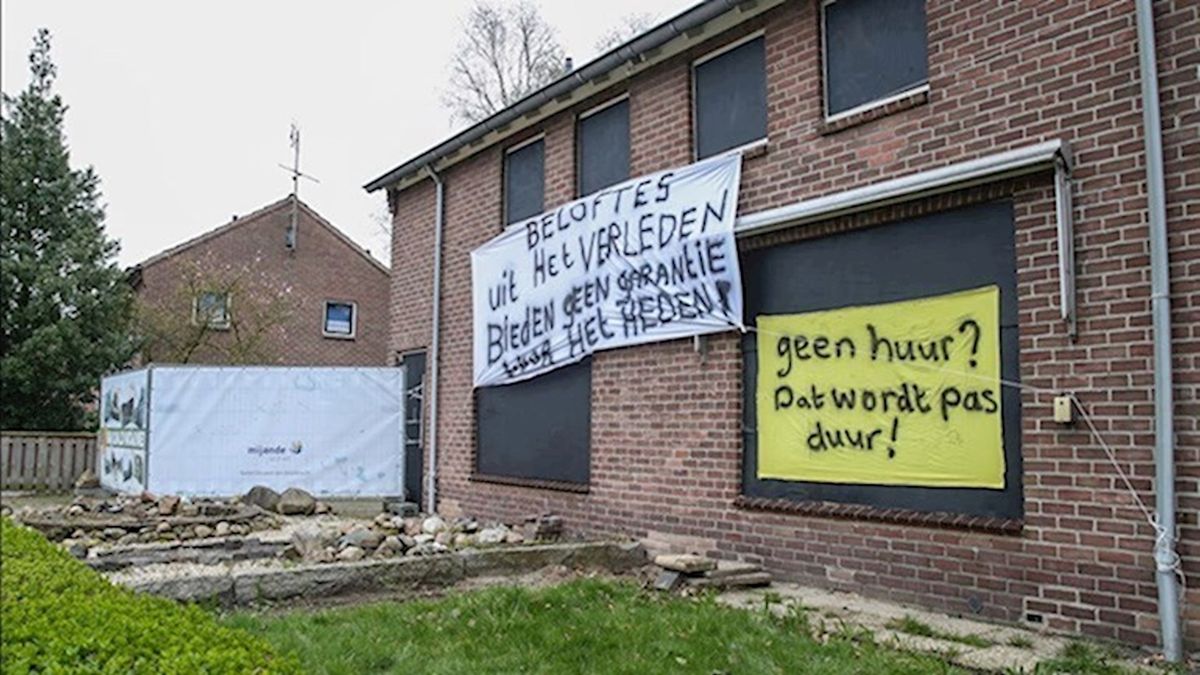 BELOFTES
uit HET VERLEDEN
BIEDEN GEEN GARANTIE
VOOR HET HEDEN!
geen huur?
Dat wordt pas
duur!
mijande